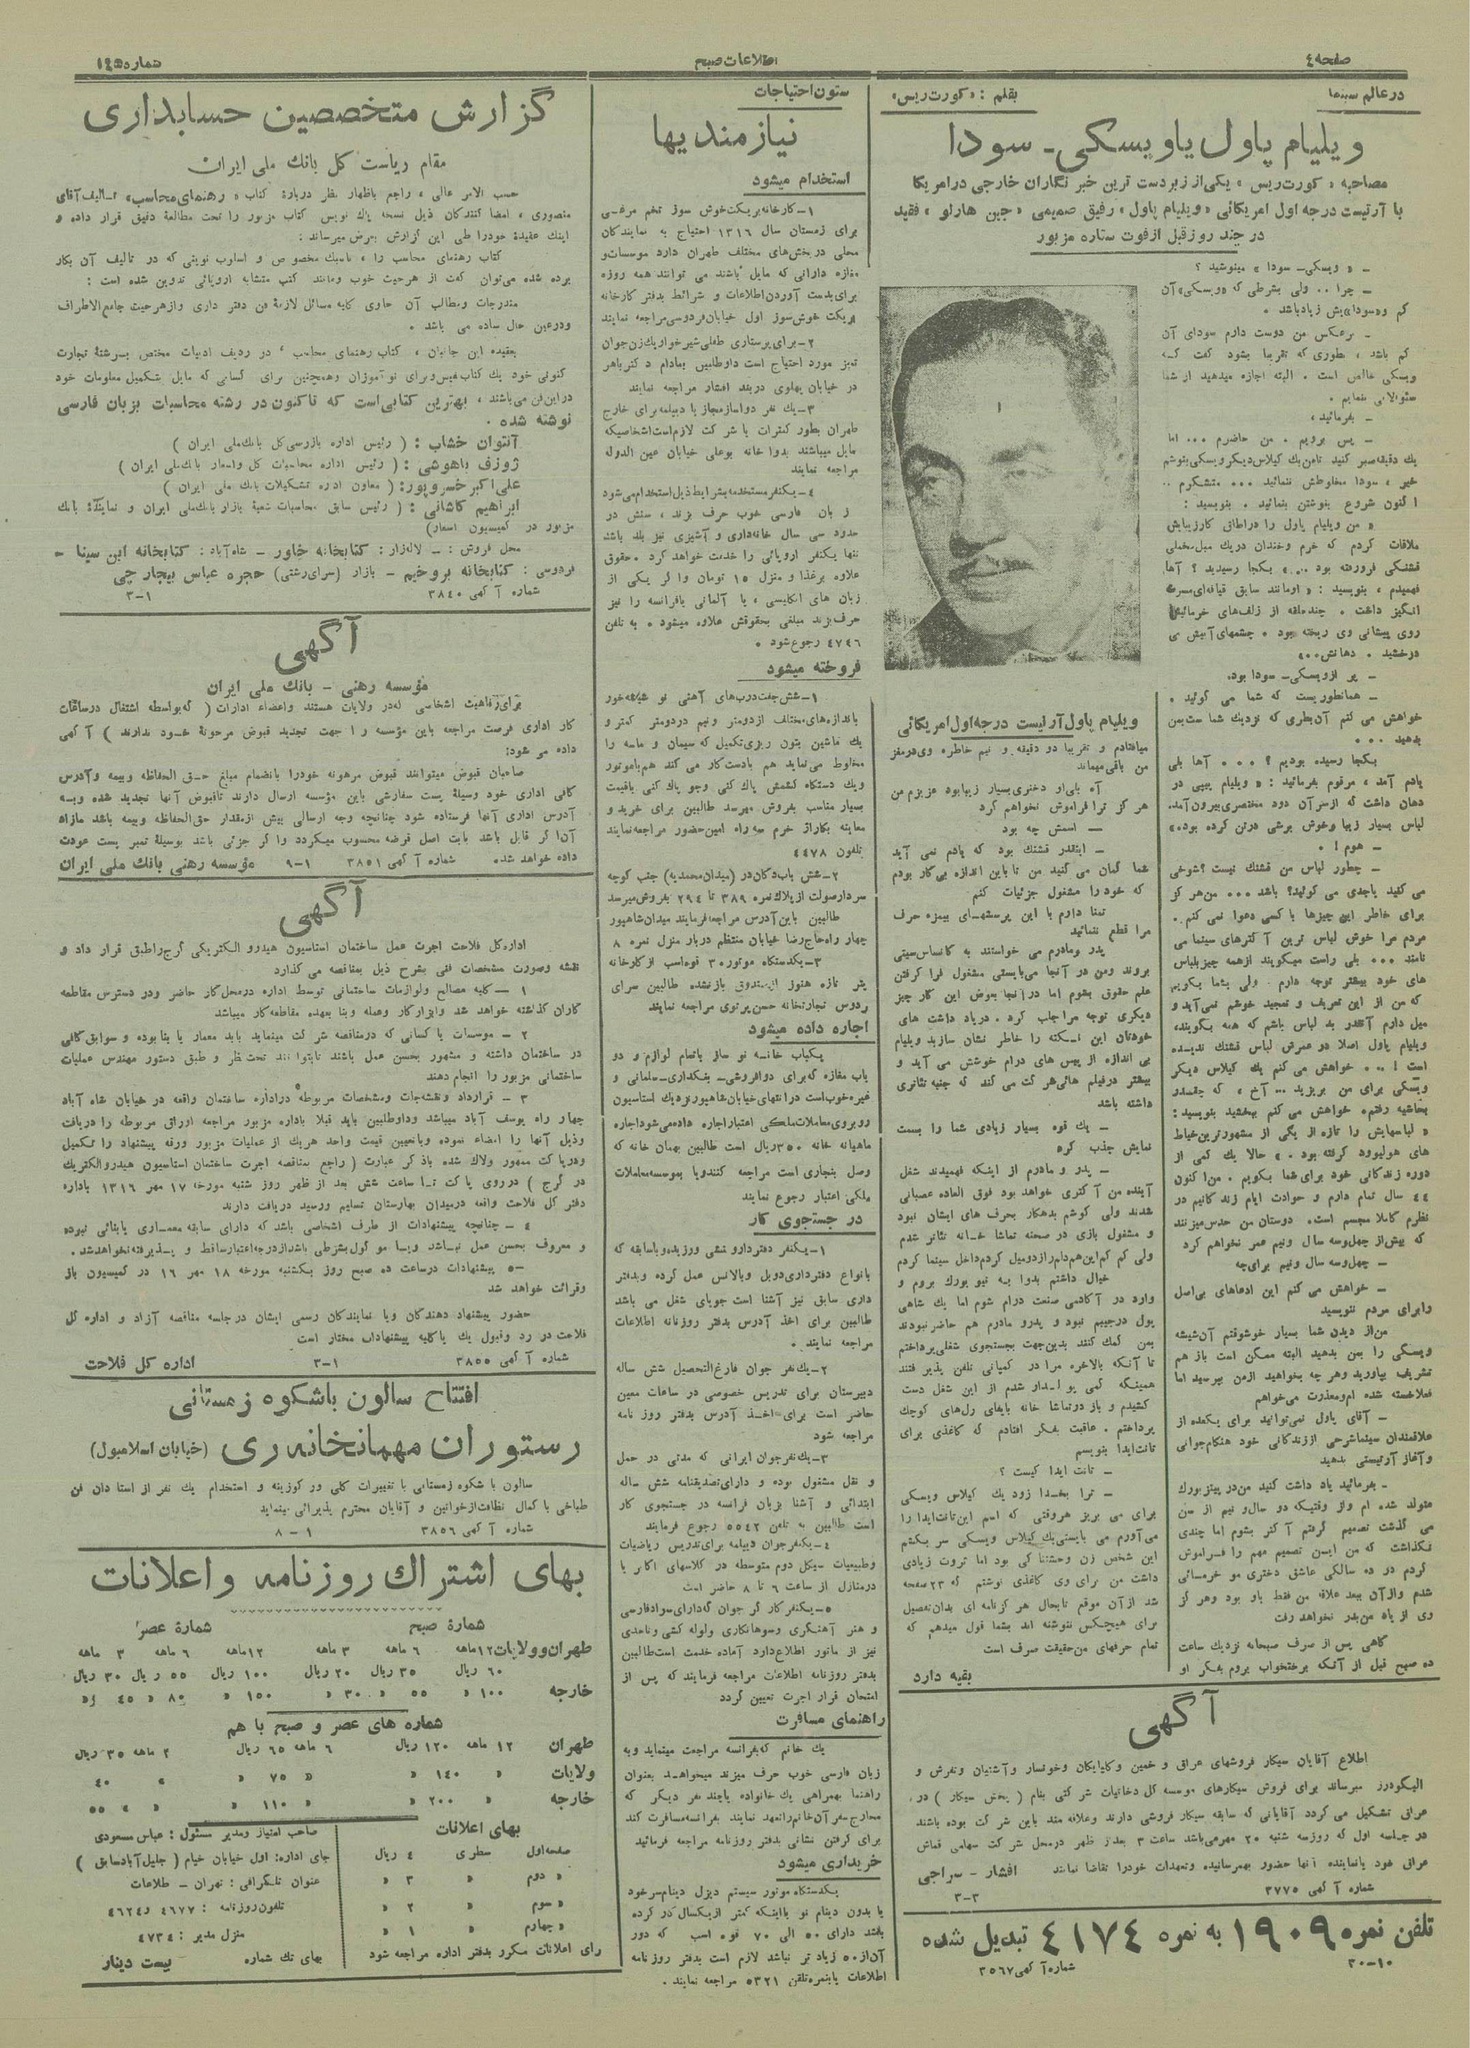 صفحه ٤
اطلاعات صبح
شماره ١٤٥
در عالم سینما
بقلم : «کورت ریس»
ویلیام پاول یا ویسکی - سودا
مصاحبه «کورت ریس» یکی از زبردست ترین خبر نگاران خارجی در امریکا
با آرتیست درجه اول امریکائی «ویلیام پاول» رفیق صمیمی «جین هارلو» فقید
در چند روز قبل از فوت ستاره مزبور
- « ویسکی- سودا » مینوشید ؟
- چرا .. ولی بشرطی که «ویسکی» آن
کم و «سودا» یش زیاد باشد .
- برعکس من دوست دارم سودای آن
کم باشد ، بطوری که تقریبا بشود گفت که
ویسکی خالص است . البته اجازه میدهید از شما
سئوالاتی بنمایم .
- بفرمائید ،
- پس برویم . من حاضرم ... اما
یك دقیقه صبر کنید تا من یك گیلاس دیگر ویسکی بنوشم
خیر ، سودا مخلوطش ننمائید ... متشکرم ..
اکنون شروع بنوشتن بنمائید . بنویسید :
روی پیشانی وی ریخته بود . چشمهای آبیش می
درخشید . دهانش...
- پر از ویسکی- سودا بود.
- همانطوریست که شما می گوئید .
خواهش می کنم آن بطری که نزدیك شماست بمن
بدهید ...
بکجا رسیده بودیم ؟ ... آها بلی
یادم آمد ، مرقوم بفرمائید : « ویلیام پیپی در
دهان داشت که از سر آن دود مختصری بیرون آمد.
لباس بسیار زیبا و خوش برشی در تن کرده بود.»
- هوم ! .
- چطور لباس من قشنك نیست ؟ شوخی
می کنید یا جدی می گوئید؟ باشد ... من هر گز
برای خاطر این چیزها با کسی دعوا نمی کنم .
مردم مرا خوش لباس ترین آکترهای سینما می
نامند ... بلی راست میگویند از همه چیز بلباس
های خود بیشتر توجه دارم . ولی بشما بگویم
که من از این تعریف و تمجید خوشم نمی آید و
میل دارم آنقدر بد لباس باشم که همه بگویند،
ویلیام پاول اصلا در عمرش لباس قشنك ندیده
است ! ... خواهش می کنم یك گیلاس دیگر
ویسکی برای من بریزید ... آخ ، که چقدر
بحاشیه رفتم، خواهش می کنم ببخشید بنویسید :
« لباسهایش را تازه از یکی از مشهورترین خیاط
های هولیوود گرفته بود . » حالا یك کمی از
دوره زندگانی خود برای شما بگویم . من اکنون
٤٤ سال تمام دارم و حوادث ایام زندگانیم در
نظرم کاملا مجسم است. دوستان من حدس میزنند
که بیش از چهل و سه سال و نیم عمر نخواهم کرد
- چهل و سه سال و نیم برای چه
- خواهش می کنم این ادعاهای بی اصل
را برای مردم ننویسید
من از دیدن شما بسیار خوشوقتم آن شیشه
ویسکی را بمن بدهید البته ممکن است باز هم
تشریف بیاورید و هر چه بخواهید از من بپرسید اما
فعلا خسته شده ام و معذرت می خواهم
- آقای پاول نمی توانید برای یکعده از
علاقمندان سینما شرحی از زندگانی خود هنگام جوانی
و آغاز آرتیستی بدهید
- بفرمائید یاد داشت کنید من در پیتزبورك
متولد شده ام و از وقتیکه دو سال و نیم از سن
می گذشت تصمیم گرفتم آکتر بشوم اما چندی
نگذشت که من این تصمیم مهم را فراموش
کردم در ده سالگی عاشق دختری مو خرمائی
شدم و از آن ببعد علاقه من فقط باو بود و هر گز
وی از یاد من بدر نخواهد رفت
گاهی پس از صرف صبحانه نزدیك ساعت
ده صبح قبل از آنکه برختخواب بروم بفکر او
ویلیام پاول آرتیست درجه اول امریکائی
میافتادم و تقریبا دو دقیقه و نیم خاطره وی در مغز
من باقی میماند
آه بلی او دختری بسیار زیبا بود عزیزم من
هر گز ترا فراموش نخواهم کرد
- اسمش چه بود
- اینقدر قشنك بود که یادم نمی آید
شما گمان می کنید من تا باین اندازه بی کار بودم
که خود را مشغول جزئیات کنم
تمنا دارم با این پرسشهای بیمزه حرف
مرا قطع ننمائید
پدر و مادرم می خواستند به کانساس سیتی
بروند و من در آنجا می بایستی مشغول فرا گرفتن
علم حقوق بشوم اما در آنجا بعوض این کار چیز
دیگری توجه مرا جلب کرد . در یاد داشت های
خودتان این نکته را خاطر نشان سازید ویلیام
بی اندازه از پیس های درام خوشش می آید و
بیشتر در فیلم هائی شرکت می کند که جنبه تئاتری
داشته باشد
- یك قوه بسیار زیادی شما را بست
نمایش جذب کرد
- پدر و مادرم از اینکه فهمیدند شغل
آینده من آکتری خواهد بود فوق العاده عصبانی
شدند ولی گوشم بدهکار بحرف های ایشان نبود
و مشغول بازی در صحنه تماشا خانه تئاتر شدم
خیال داشتم بدوا به نیو یورك بروم و
وارد در آکادمی صنعت درام شوم اما یك شاهی
پول در جیبم نبود و پدر و مادرم هم حاضر نبودند
بمن کمك کنند بدین جهت بجستجوی شغلی پرداختم
تا آنکه بالاخره مرا در کمپانی تلفن پذیرفتند
همینکه کمی پولدار شدم از این شغل دست
کشیدم و باز در تماشا خانه بایفای رل های کوچك
پرداختم . عاقبت بفکر افتادم که کاغذی برای
تانت ایدا بنویسم
- تانت ایدا کیست ؟
- ترا بخدا زود یك گیلاس ویسکی
برای من بریز هر وقتی که اسم این تانت ایدا را
می آورم می بایستی یك گیلاس ویسکی سر بکشم
این شخص زن وحشتناکی بود اما ثروت زیادی
داشت من برای وی کاغذی نوشتم که ٢٣ صفحه
شد از آن موقع تا بحال هر گز نامه ای بدان تفصیل
برای هیچکس ننوشته اند بشما قول میدهم که
تمام حرفهای من حقیقت صرف است
بقیه دارد
آگهی
اطلاع آقایان سیگار فروشهای عراق و خمین و گلپایگان و خونسار و آشتیان و تفرش و
الیگودرز میرساند برای فروش سیگارهای موسسه کل دخانیات شرکتی بنام ( پخش سیگار ) در
عراق تشکیل می گردد آقایانی که سابقه سیگار فروشی دارند و علاقه مند باین شرکت بوده باشند
در جلسه اول که روز سه شنبه ٢٠ مهر می باشد ساعت ٣ بعد از ظهر در محل شرکت سهامی قماش
عراق خود یا نماینده آنها حضور بهمرسانیده و تعهدات خود را تقاضا نمایند افشار - سراجی
شماره آگهی ٣٧٧٥ ٣-٣
تلفن نمره ١٩٠٩ به نمره ٤١٧٤ تبدیل شده
٢٠-١٠ شماره آگهی ٣٥٦٧
ستون احتیاجات
نیازمندیها
استخدام میشود
١- کارخانه بریکت خوش سوز تخم مرغی
برای زمستان سال ١٣١٦ احتیاج به نمایندگان
محلی در بخش های مختلف طهران دارد موسسات و
مغازه دارانی که مایل باشند می توانند همه روزه
برای بدست آوردن اطلاعات و شرائط بدفتر کارخانه
بریکت خوش سوز اول خیابان فردوسی مراجعه نمایند
٢- برای پرستاری طفلی شیر خوار یك زن جوان
تمیز مورد احتیاج است داوطلبین بمادام دکتر باهر
در خیابان پهلوی دربند افشار مراجعه نمایند
٣- یك نفر دواساز مجاز یا دیپلمه برای خارج
طهران بطور کنترات یا شرکت لازم است اشخاصیکه
مایل میباشند بدوا خانه بوعلی خیابان عین الدوله
مراجعه نمایند
٤- یکنفر مستخدمه بشرایط ذیل استخدام می شود
زبان فارسی خوب حرف بزند ، سنش در
حدود سی سال خانه داری و آشپزی نیز بلد باشد
تنها یکنفر اروپائی را خدمت خواهد کرد . حقوق
علاوه بر غذا و منزل ١٥ تومان و اگر یکی از
زبان های انگلیسی ، یا آلمانی یا فرانسه را نیز
حرف بزند مبلغی بحقوقش علاوه میشود . به تلفن
٤٧٤٦ رجوع شود .
فروخته میشود
١- شش جفت درب های آهنی نو شیشه خور
باندازه های مختلف از دو متر و نیم در دو متر کمتر و
یك ماشین بتون ریزی تکمیل که سیمان و ماسه را
مخلوط می نماید هم با دست کار می کند هم با موتور
و یك دستگاه کشمش پاك کنی و جو پاك کنی با قیمت
بسیار مناسب بفروش میرسد طالبین برای خرید و
معاینه بکاراژ خرم سه راه امین حضور مراجعه نمایند
تلفون ٤٤٧٨
٢- شش باب دکان در (میدان محمدیه) جنب کوچه
سردار صولت از پلاك نمره ٣٨٩ تا ٢٩٤ بفروش میرسد
طالبین باین آدرس مراجعه فرمایند میدان شاهپور
چهار راه حاج رضا خیابان منتظم دربار منزل نمره ٨
٣- یکدستگاه موتور ٣٠ قوه اسب از کارخانه
پتر تازه هنوز از صندوق باز نشده طالبین سرای
ردوس تجارتخانه حسن پرتوی مراجعه نمایند
اجاره داده میشود
یکباب خانه نو ساز با تمام لوازم و دو
باب مغازه که برای دوا فروشی- بنکداری- سلمانی و
غیره خوب است در انتهای خیابان شاهپور نزدیك استاسیون
روبروی معاملات ملکی اعتبار اجاره داده می شود اجاره
ماهیانه خانه ٣٥٠ ریال است طالبین بهمان خانه که
وصل بنجاری است مراجعه کنند و یا بموسسه معاملات
ملکی اعتبار رجوع نمایند
در جستجوی کار
١- یکنفر دفتردار و منشی ورزیده و با سابقه که
بانواع دفترداری دوبل و بالانس عمل کرده و بدفتر
داری سابق نیز آشنا است جویای شغل می باشد
طالبین برای اخذ آدرس بدفتر روزنامه اطلاعات
مراجعه نمایند .
٢- یك نفر جوان فارغ التحصیل شش ساله
دبیرستان برای تدریس خصوصی در ساعات معین
حاضر است برای اخذ آدرس بدفتر روزنامه
مراجعه شود
٣- یك نفر جوان ایرانی که مدتی در حمل
و نقل مشغول بوده و دارای تصدیقنامه شش ساله
ابتدائی و آشنا بزبان فرانسه در جستجوی کار
است طالبین به تلفن ٥٥٤٢ رجوع فرمایند
٤- یکنفر جوان دیپلمه برای تدریس ریاضیات
وطبیعیات سیکل دوم متوسطه در کلاسهای اکابر یا
در منازل از ساعت ٦ تا ٨ حاضر است
٥- یکنفر کارگر جوان که دارای سواد فارسی
و هنر آهنگری و سوهانکاری و لوله کشی و تا حدی
نیز از مانور اطلاع دارد آماده خدمت است طالبین
بدفتر روزنامه اطلاعات مراجعه فرمایند که پس از
امتحان قرار اجرت تعیین گردد
راهنمای مسافرت
یك خانم که بفرانسه مراجعت مینماید و به
زبان فارسی خوب حرف میزند میخواهد بعنوان
راهنما بهمراهی یك خانواده یا چند نفر دیگر که
مخارج سفر آن خانم را تعهد نمایند بفرانسه مسافرت کند
برای گرفتن نشانی بدفتر روزنامه مراجعه فرمائید
خریداری میشود
یکدستگاه موتور سیستم دیزل دینام سر خود
یا بدون دینام نو یا اینکه کمتر از یکسال کار کرده
باشد دارای ٥٠ الی ٧٠ قوه اسب که دور
آن از ٥٠٠ زیاد تر نباشد لازم است بدفتر روزنامه
اطلاعات یا بنمره تلفن ٥٣٢١ مراجعه نمایند .
گزارش متخصصین حسابداری
مقام ریاست کل بانك ملی ایران
حسب الامر عالی ، راجع باظهار نظر درباره کتاب «رهنمای محاسب» تالیف آقای
منصوری ، امضا کنندگان ذیل نسخه پاك نویس کتاب مزبور را تحت مطالعه دقیق قرار داده و
اینك عقیده خود را طی این گزارش بعرض میرساند :
کتاب رهنمای محاسب را ، باسبك مخصوص و اسلوب نوینی که در تالیف آن بکار
برده شده می توان گفت از هر حیث خوب و مانند کتب متشابه اروپائی تدوین شده است :
مندرجات و مطالب آن حاوی کلیه مسائل لازمه فن دفتر داری و از هر حیث جامع الاطراف
و در عین حال ساده می باشد .
بعقیده این جانبان ، کتاب رهنمای محاسب ، در ردیف ادبیات مختص برشته تجارت
کنونی خود یك کتاب نفیس و برای نو آموزان و همچنین برای کسانی که مایل بتکمیل معلومات خود
در این فن می باشند ، بهترین کتابی است که تاکنون در رشته محاسبات بزبان فارسی
نوشته شده .
آنتوان خشاب : ( رئیس اداره بازرسی کل بانك ملی ایران )
ژوزف باهوشی : ( رئیس اداره محاسبات کل و اسعار بانك ملی ایران )
علی اکبر خسروپور: ( معاون اداره تشکیلات بانك ملی ایران )
ابراهیم کاشانی : ( رئیس سابق محاسبات شعبه بازار بانك ملی ایران و نماینده بانك
مزبور در کمیسیون اسعار)
محل فروش : - لاله زار : کتابخانه خاور - شاه آباد : کتابخانه ابن سینا -
فردوسی : کتابخانه بروخیم - بازار (سرای رشتی) حجره عباس بیجارچی
شماره آگهی ٣٨٤٠ ٣-١
آگهی
مؤسسه رهنی - بانك ملی ایران
برای رفاهیت اشخاصی که در ولایات هستند و اعضاء ادارات ( که بواسطه اشتغال در ساعات
کار اداری فرصت مراجعه باین مؤسسه را جهت تجدید قبوض مرهونه خود ندارند ) آگهی
داده می شود:
صاحبان قبوض میتوانند قبوض مرهونه خود را بانضمام مبلغ حق الحفاظه و بیمه و آدرس
کافی اداری خود وسیله پست سفارشی باین مؤسسه ارسال دارند تا قبوض آنها تجدید شده و به
آدرس اداری آنها فرستاده شود چنانچه وجه ارسالی بیش از مقدار حق الحفاظه و بیمه باشد مازاد
آن اگر قابل باشد بابت اصل قرضه محسوب میگردد و اگر جزئی باشد بوسیله تمبر پست عودت
داده خواهد شد.
شماره آگهی ٣٨٥١ ٩-١ مؤسسه رهنی بانك ملی ایران
آگهی
اداره کل فلاحت اجرت عمل ساختمان استاسیون هیدرو الکتریکی کرج را طبق قرار داد و
نقشه و صورت مشخصات فنی بشرح ذیل بمناقصه می گذارد
١ - کلیه مصالح و لوازمات ساختمانی توسط اداره در محل کار حاضر و در دسترس مقاطعه
کاران گذاشته خواهد شد و ابزار کار و عمله و بنا بعهده مقاطعه کار میباشد
٢ - موسسات یا کسانی که در مناقصه شرکت مینماید باید معمار یا بنا بوده و سوابق کافی
در ساختمان داشته و مشهور بحسن عمل باشند تا بتوانند تحت نظر و طبق دستور مهندس عملیات
ساختمانی مزبور را انجام دهند
٣ - قرارداد و نقشه جات و مشخصات مربوطه در اداره ساختمان واقعه در خیابان شاه آباد
چهار راه یوسف آباد میباشد و داوطلبین باید قبلا باداره مزبور مراجعه اوراق مربوطه را دریافت
و ذیل آنها را امضاء نموده و با تعیین قیمت واحد هر یك از عملیات مزبور ورقه پیشنهاد را تکمیل
و در پاکت ممهور و لاك شده با ذکر عبارت ( راجع بمناقصه اجرت ساختمان استاسیون هیدرو الکتریك
در کرج ) در روی پاکت تا ساعت شش بعد از ظهر روز شنبه مورخه ١٧ مهر ١٣١٦ باداره
دفتر کل فلاحت واقعه در میدان بهارستان تسلیم و رسید دریافت دارند
٤ - چنانچه پیشنهادات از طرف اشخاصی باشد که دارای سابقه معماری یا بنائی نبوده
و معروف بحسن عمل نباشد و یا موکول بشرطی باشد از درجه اعتبار ساقط و پذیرفته نخواهد شد.
-٥ پیشنهادات در ساعت ده صبح روز یکشنبه مورخه ١٨ مهر ١٦ در کمیسیون باز
و قرائت خواهد شد
حضور پیشنهاد دهندگان و یا نمایندگان رسمی ایشان در جلسه مناقصه آزاد و اداره کل
فلاحت در رد و قبول یك یا کلیه پیشنهادات مختار است
شماره آگهی ٣٨٥٥ ٣-١ اداره کل فلاحت
افتتاح سالون باشکوه زمستانی
رستوران مهمانخانه ری (خیابان اسلامبول)
سالون با شکوه زمستانی با تغییرات کلی و کوزینه و استخدام یك نفر از استادان فن
طباخی با کمال نظافت از خوانین و آقایان محترم پذیرائی مینماید
شماره آگهی ٣٨٥٦ ١-٨
بهای اشتراك روزنامه و اعلانات
شماره صبح شماره عصر
طهران و ولایات ١٢ ماهه ٦ ماهه ٣ ماهه ١٢ ماهه ٦ ماهه ٣ ماهه
٦٠ ریال ٣٥ ریال ٢٠ ریال ١٠٠ ریال ٥٥ ریال ٣٠ ریال
خارجه ١٠٠ » ٥٥ » ٣٠ » ١٥٠ » ٨٠ » ٤٥ »
شماره های عصر و صبح با هم
طهران ١٢ ماهه ١٢٠ ریال ٦ ماهه ٦٥ ریال ٣ ماهه ٣٥ ریال
ولایات » ١٤٠ » » ٧٥ » » ٤٠
خارجه » ٢٠٠ » » ١١٠ » » ٥٥
بهای اعلانات
صفحه اول سطری ٤ ریال
» دوم » ٣ »
» سوم » ٢ »
» چهارم » ١ »
برای اعلانات مکرر بدفتر اداره مراجعه شود
صاحب امتیاز و مدیر مسئول : عباس مسعودی
جای اداره: اول خیابان خیام ( جلیل آباد سابق )
عنوان تلگرافی : تهران - طلاعات
تلفون روزنامه : ٤٦٧٧ و ٤٦٢٤
منزل مدیر : ٤٧٣٤
بهای تك شماره بیست دینار